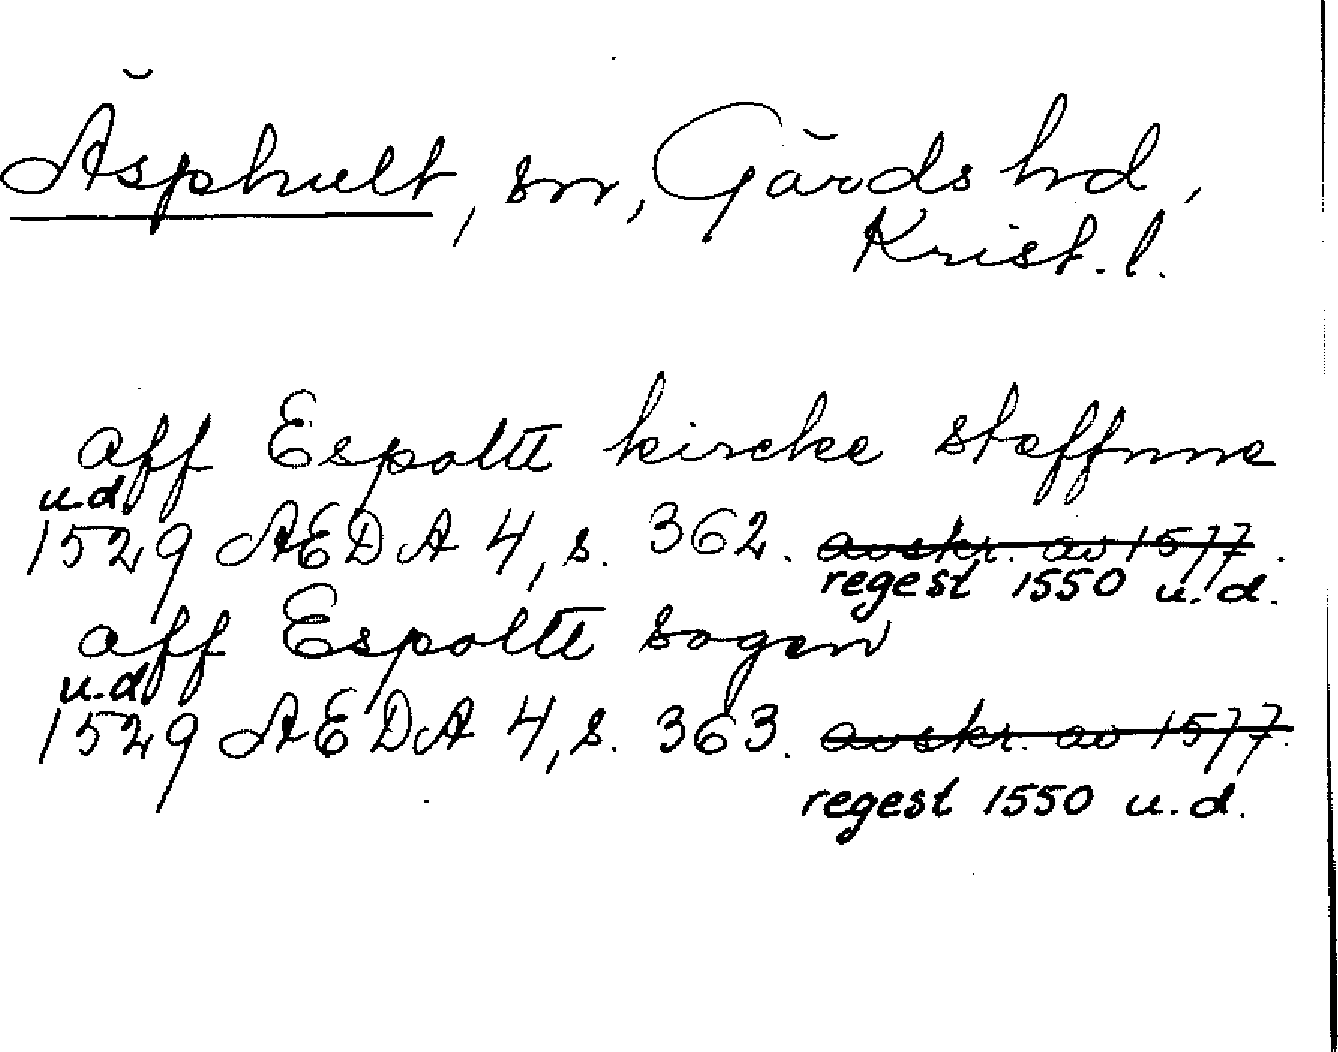 Äsphult, sn, Gärds hd,
Krist. l.
aff Espoltt kircke steffnne
u.d
1529 AEDA 4, s. 362. avskr. av 1577.
regest 1550 u.d.
aff Espoltt sogen
u.d
1529 AEDA 4, s. 363. avskr. av 1577.
regest 1550 u.d.